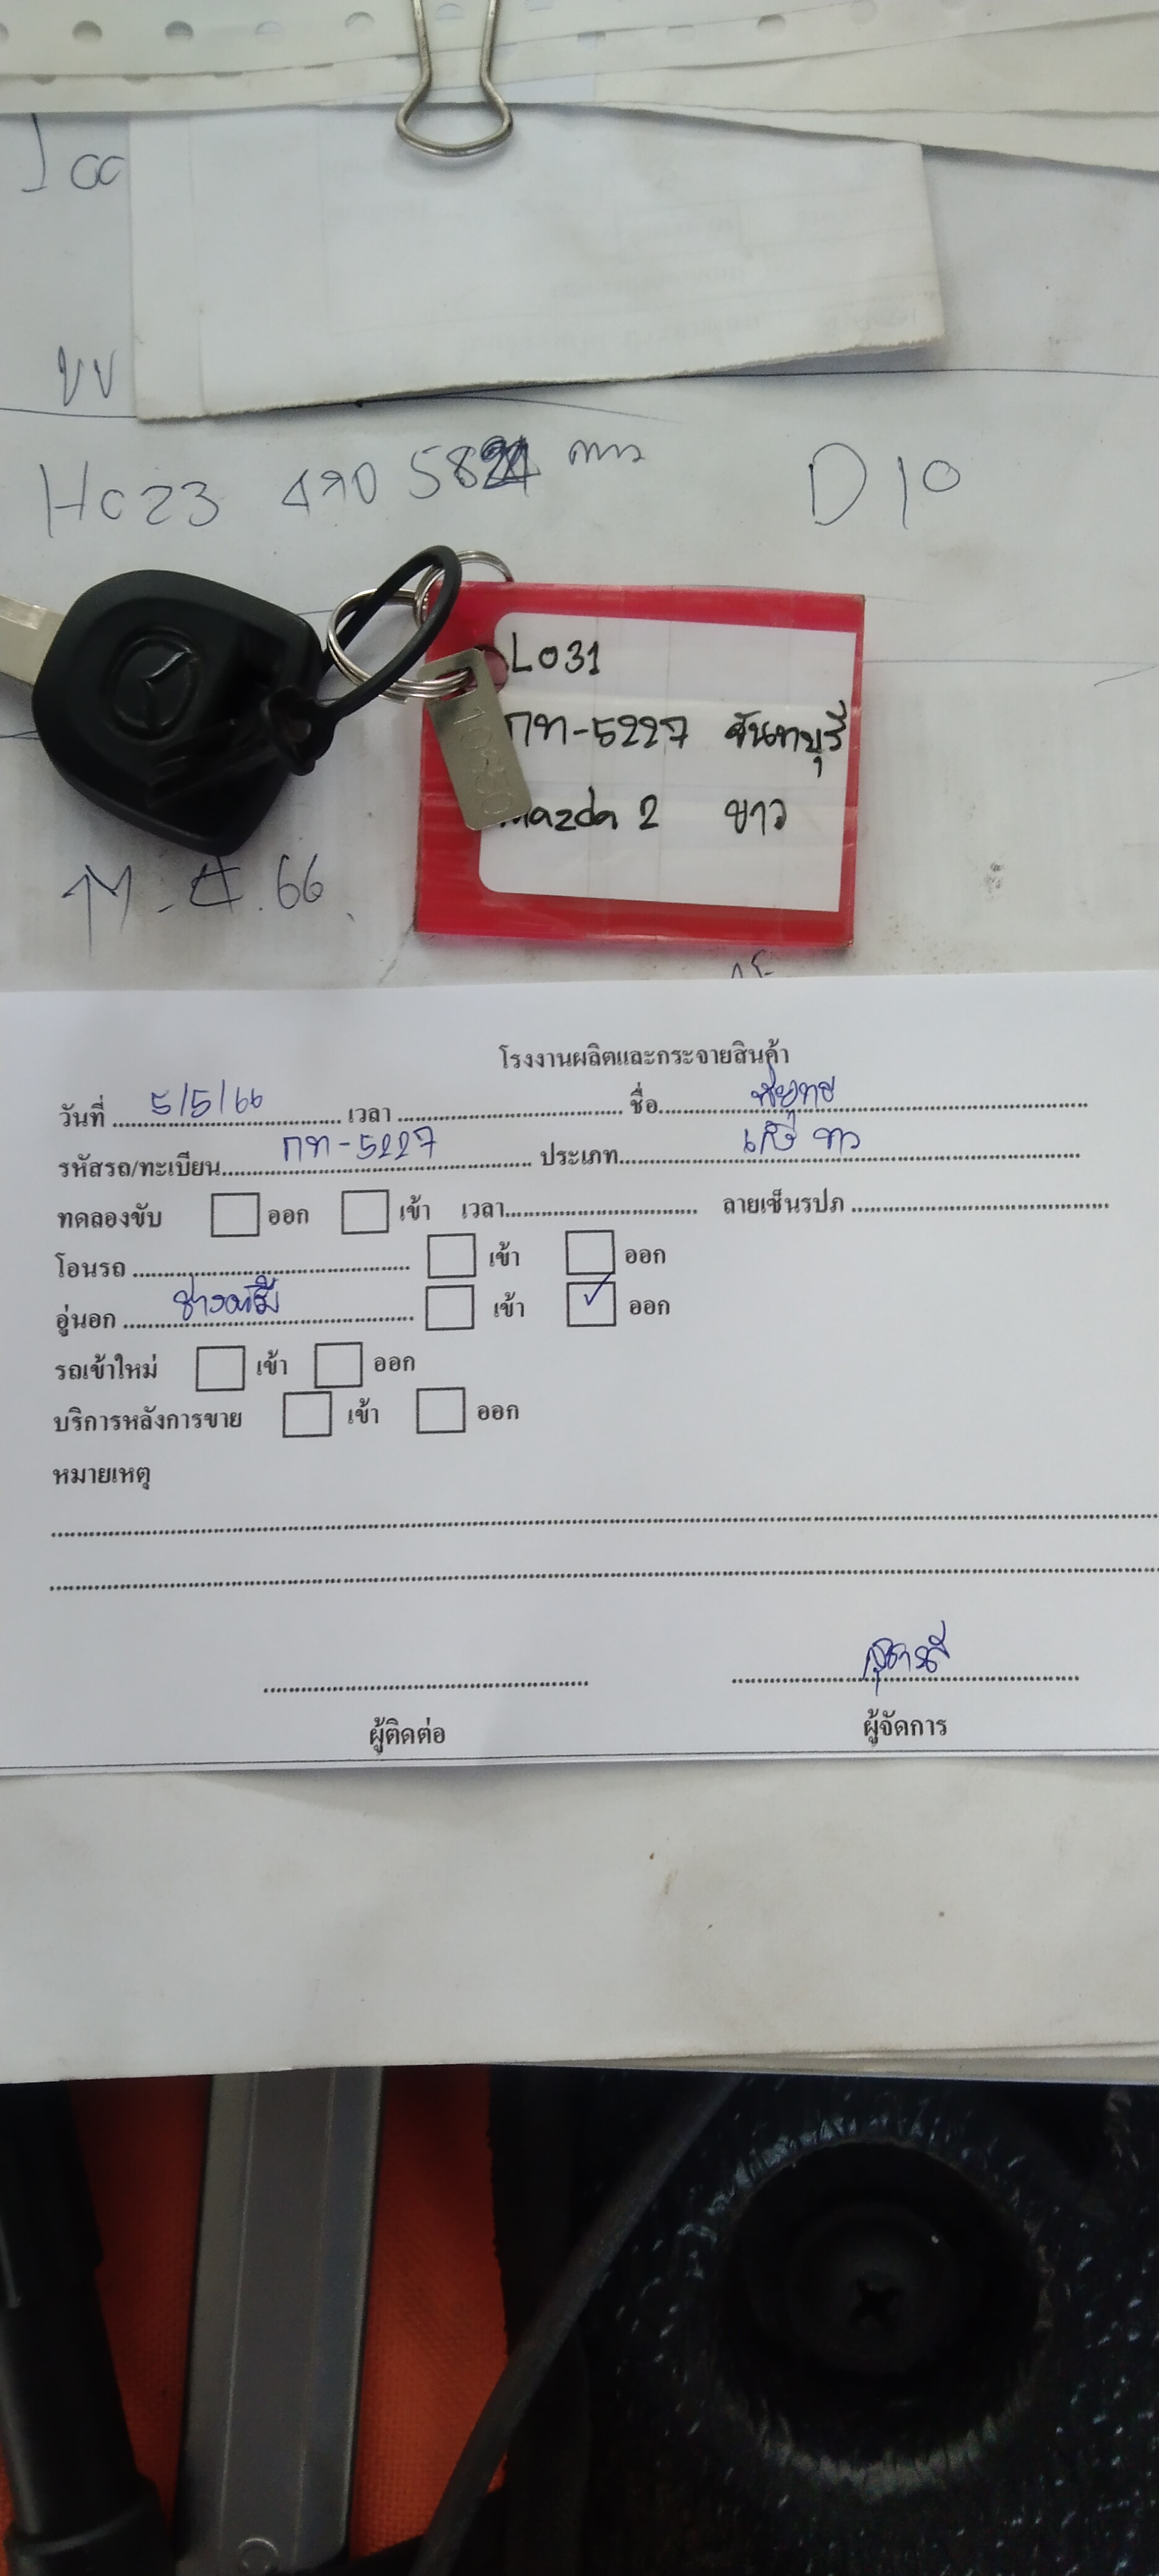 Hc23 490 58
D10
L031
กท-5227 จันทบุรี
Mazda 2 ขาว
10350
66
โรงงานผลิตและกระจายสินค้า
วันที่ 5/5/66 เวลา ชื่อ
รหัสรถ/ทะเบียน กท-5227 ประเภท เก๋ง ขาว
ทดลองขับ ออก เข้า เวลา ลายเซ็นรปภ
โอนรถ เข้า ออก
อู่นอก เข้า ✓ ออก
รถเข้าใหม่ เข้า ออก
บริการหลังการขาย เข้า ออก
หมายเหตุ
ผู้ติดต่อ ผู้จัดการ